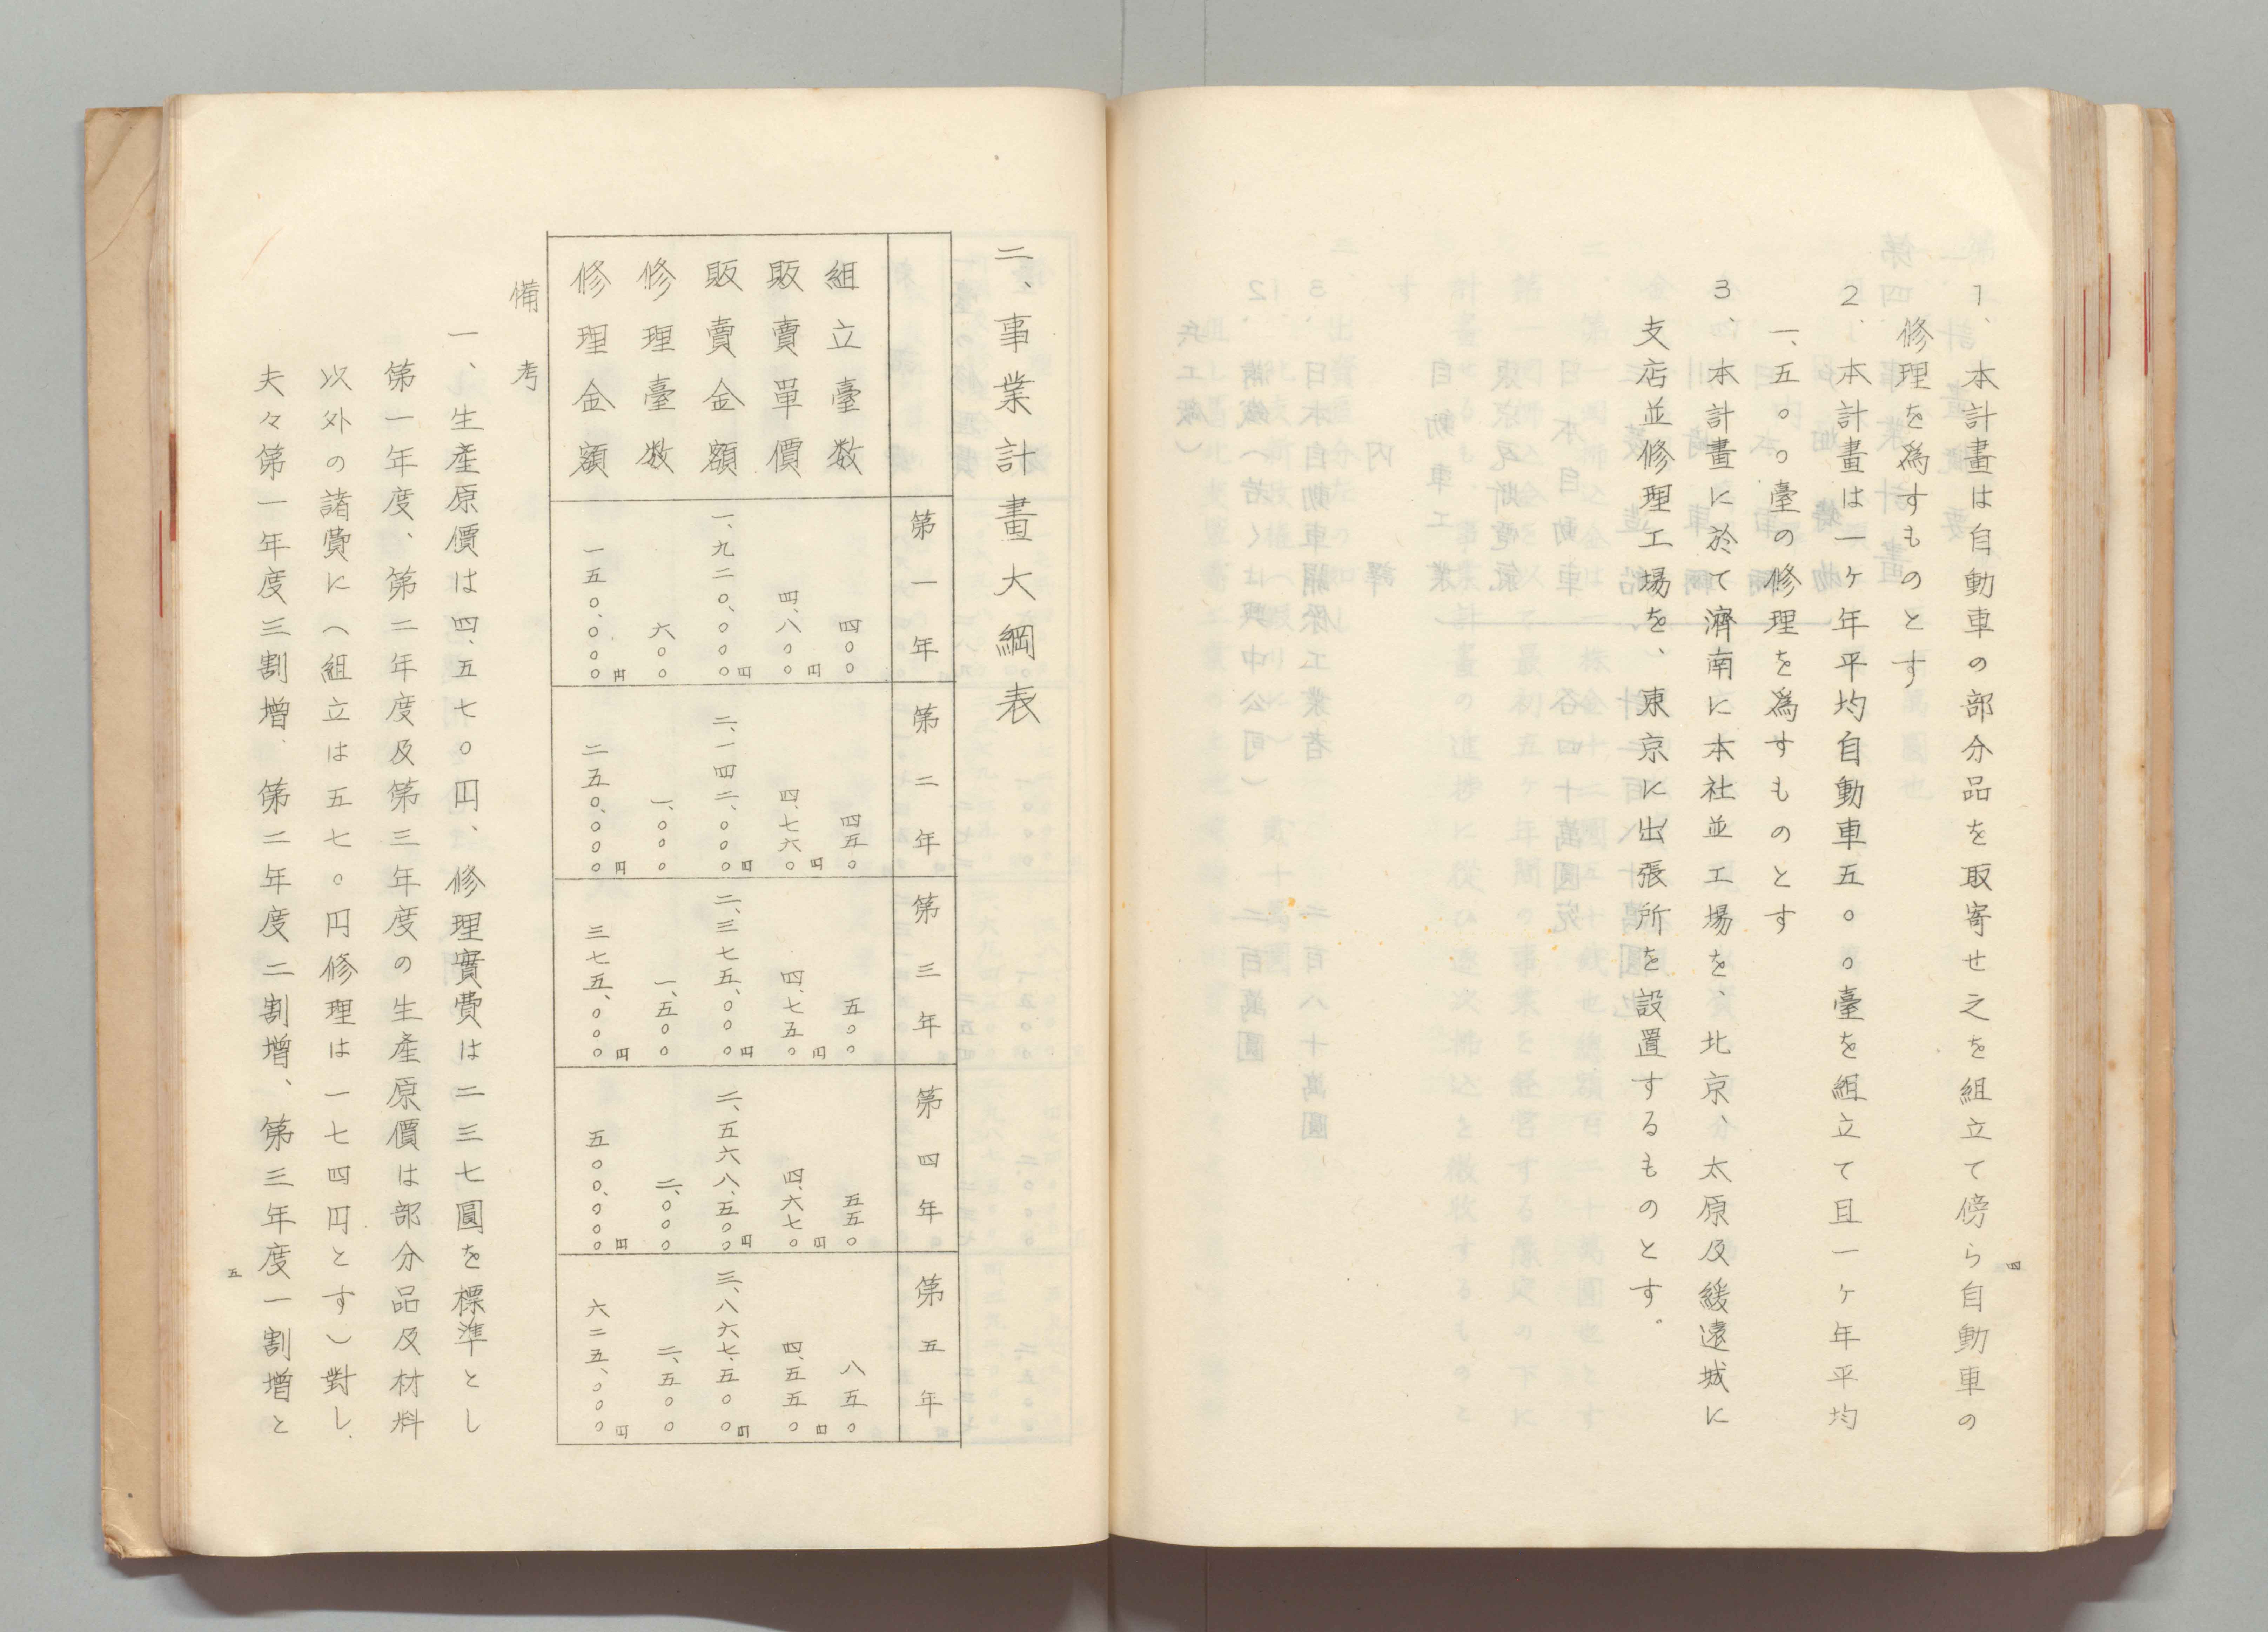 1、本計畫は自動車の部分品を取寄せ之を組立て傍ら自動車の
修理を爲すものとす
2、本計畫は一ヶ年平均自動車五〇〇臺を組立て且一ヶ年平均
一、五〇〇臺の修理を爲すものとす
3、本計畫に於て濟南に本社並工場を、北京、太原及綏遠城に
支店並修理工場を、東京に出張所を設置するものとす。
四
二、事業計畫大綱表
第一年 第二年 第三年 第四年 第五年
組立臺数 四〇〇 四五〇 五〇〇 五五〇 八五〇
販賣單價 四、八〇〇円 四、七六〇円 四、七五〇円 四、六七〇円 四、五五〇円
販賣金額 一、九二〇、〇〇〇円 二、一四二、〇〇〇円 二、三七五、〇〇〇円 二、五六八、五〇〇円 三、八六七、五〇〇円
修理臺数 六〇〇 一、〇〇〇 一、五〇〇 二、〇〇〇 二、五〇〇
修理金額 一五〇、〇〇〇円 二五〇、〇〇〇円 三七五、〇〇〇円 五〇〇、〇〇〇円 六二五、〇〇〇円
備考
一、生産原價は四、五七〇円、修理實費は二三七圓を標準とし
第一年度、第二年度及第三年度の生産原價は部分品及材料
以外の諸費に（組立は五七〇円修理は一七四円とす）對し、
夫々第一年度三割增、第二年度二割增、第三年度一割增と
五